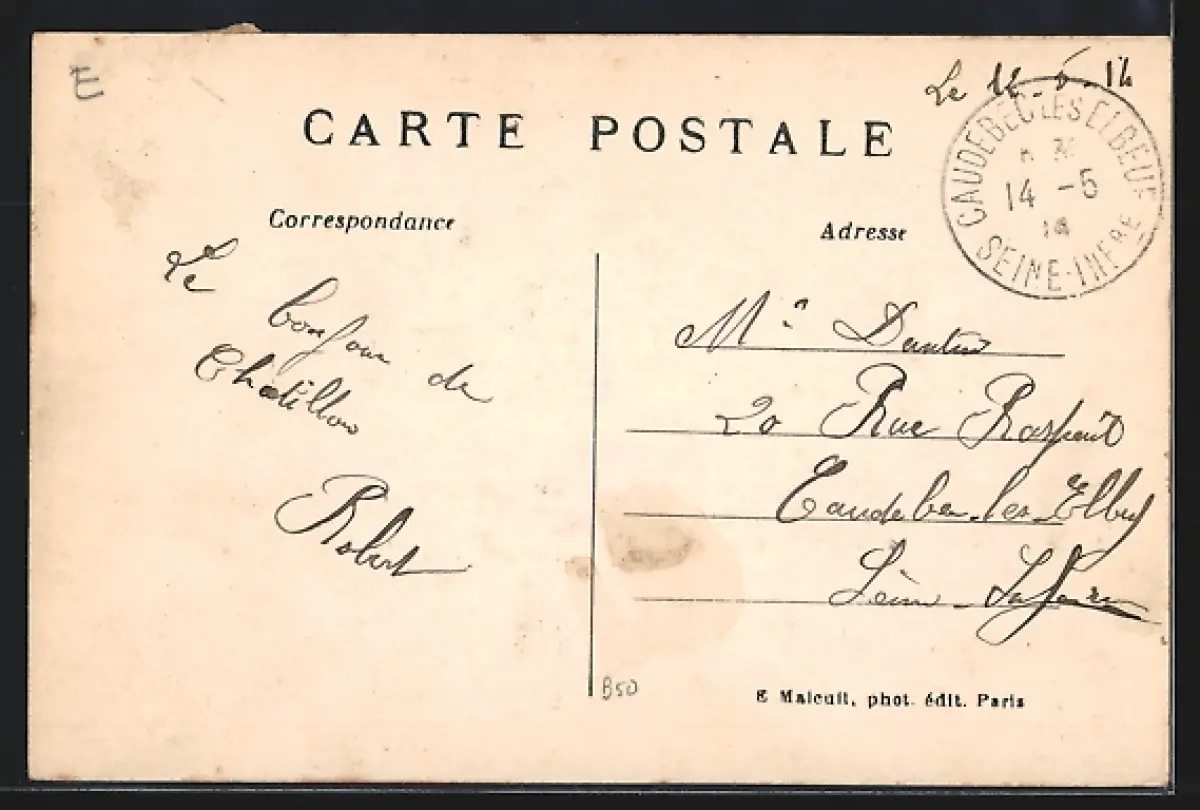 E
Le 12-5-14
CARTE POSTALE
CAUDEBEC-LES-ELBEUF
14 -5
14
SEINE-INFRE
Correspondance
Adresse
Le bonjour de
Chatillon
Robert
Mr
20 Rue Raspail
Caudebec-les-Elbeuf
Seine-Inférieure
B50
E Malcuit, phot. édit. Paris